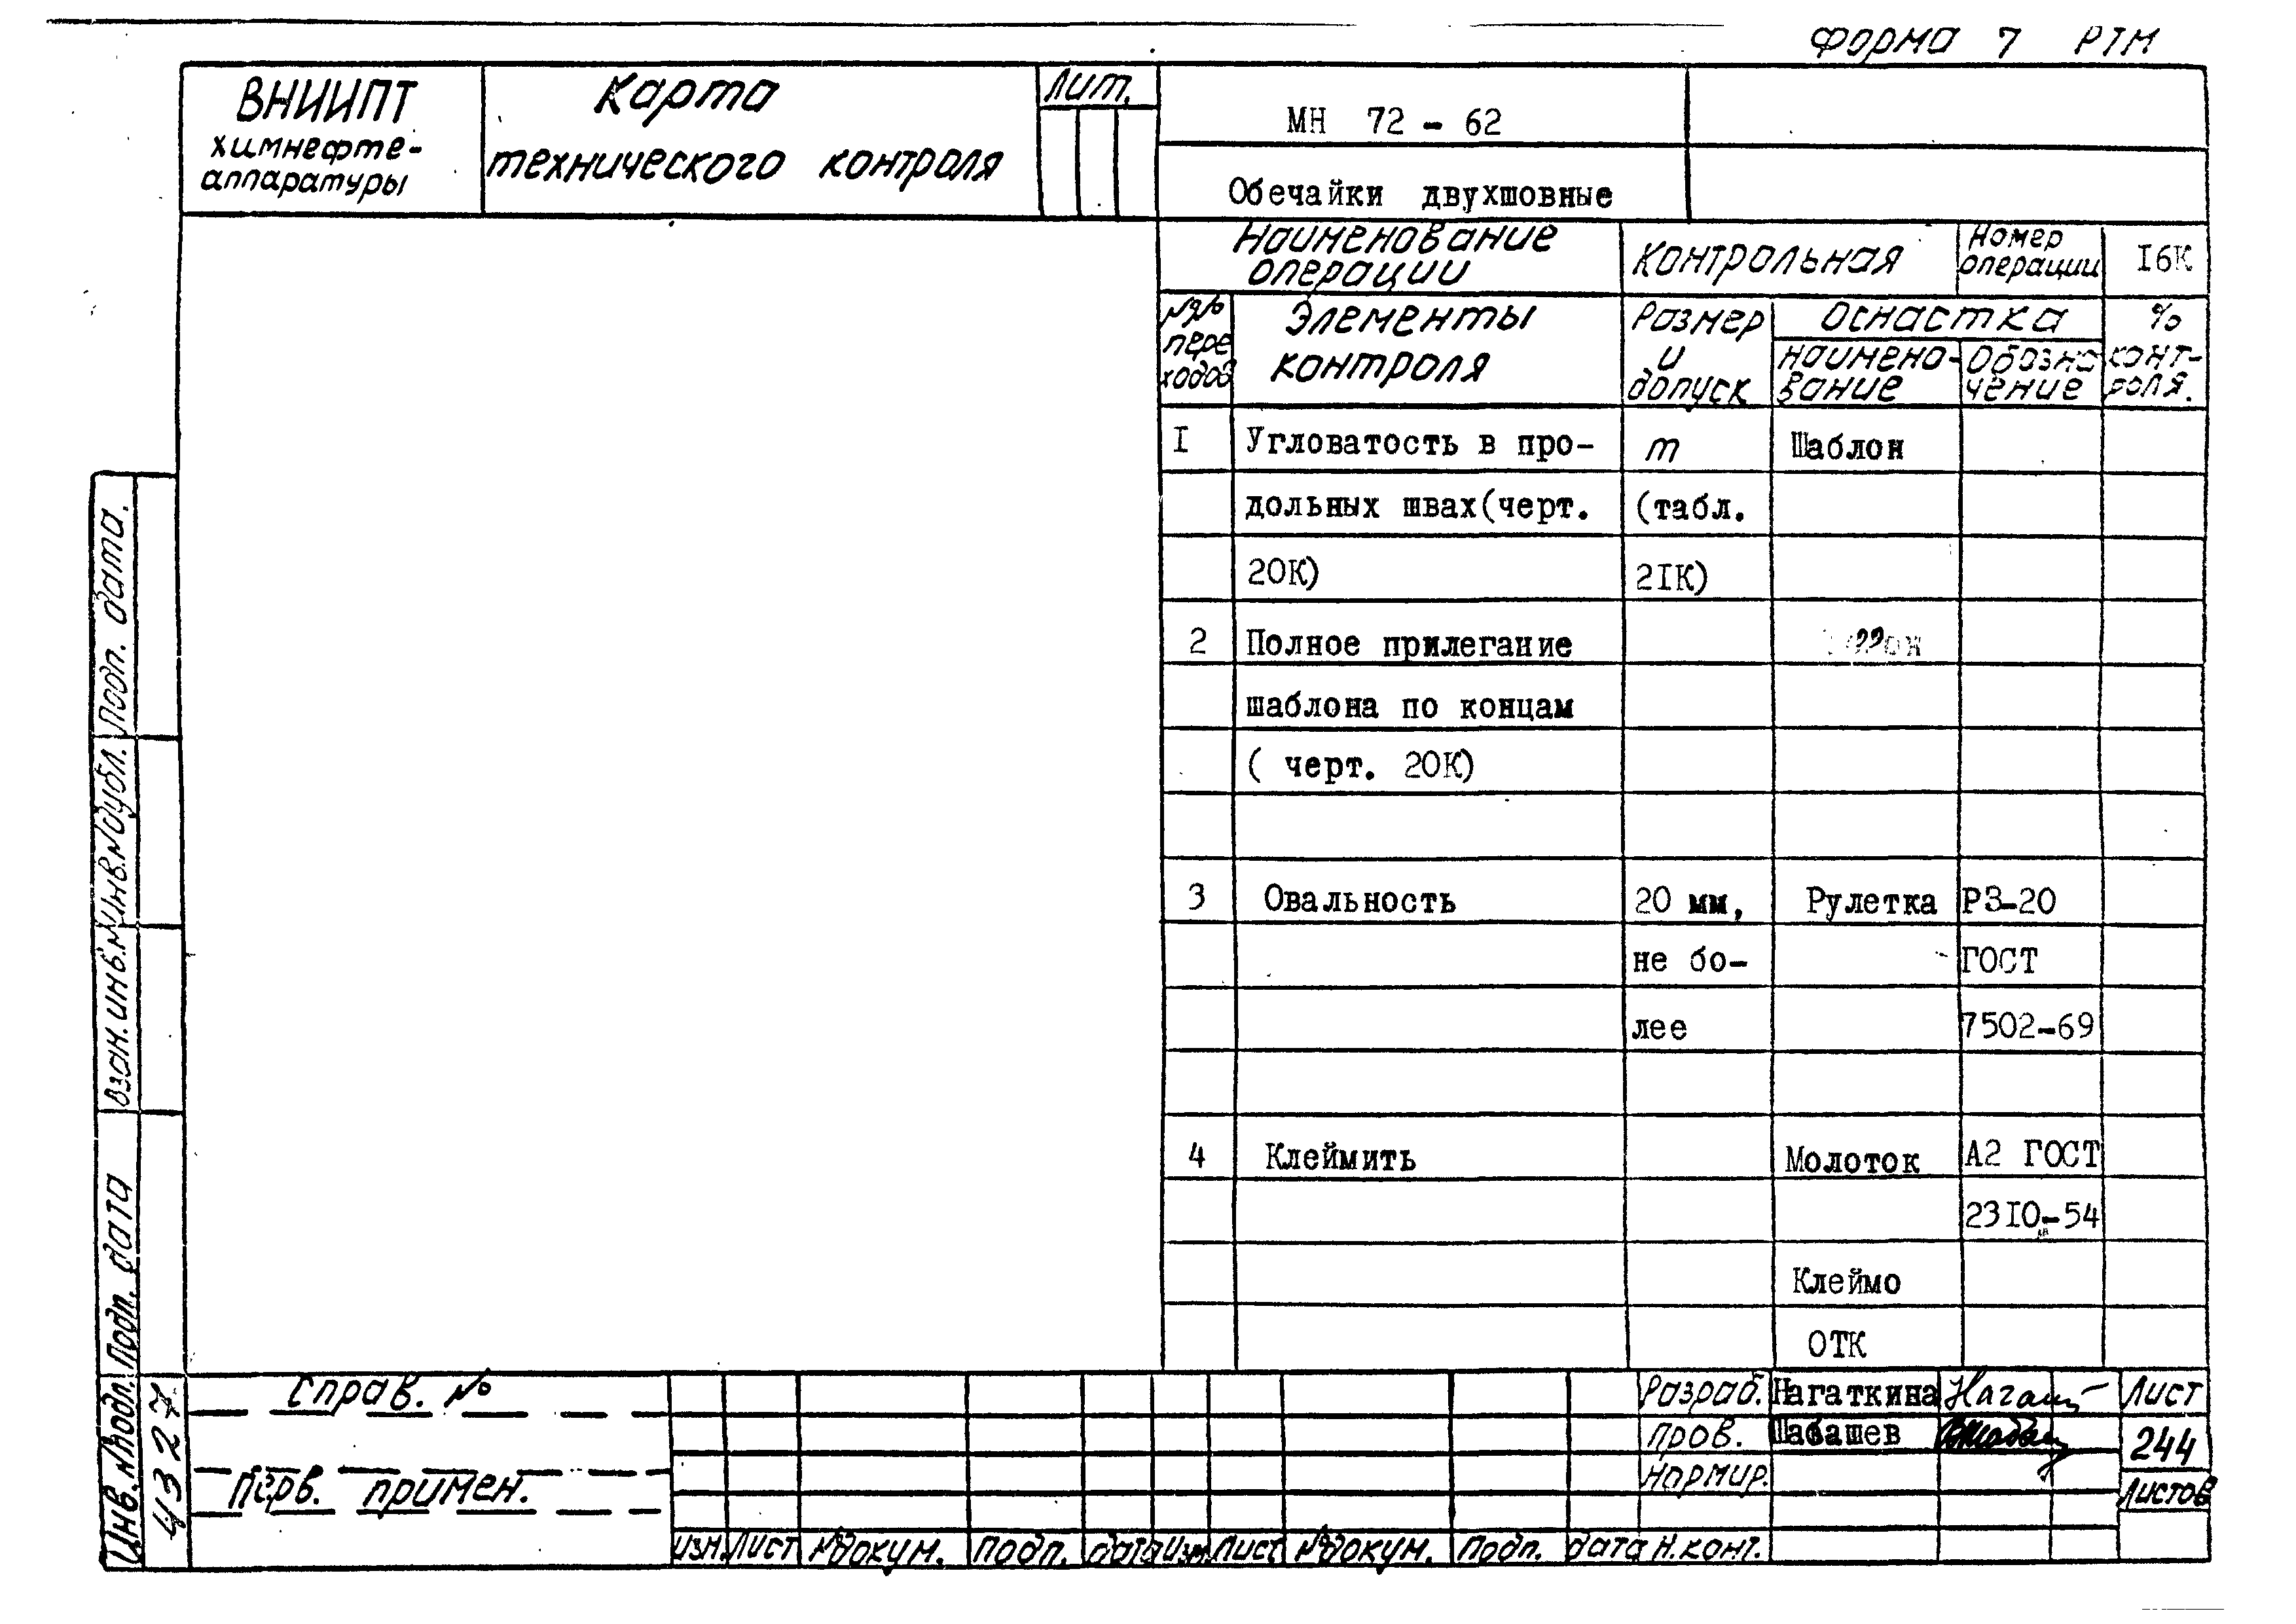 Форма 7 РТМ
ВНИИПТ
химнефте-
аппаратуры
Карта
технического контроля
Лит.
МН 72 - 62
Обечайки двухшовные
Наименование
операции
Контрольная
Номер
операции
I6К
№№
пере
ходов
Элементы
контроля
Размер
и
допуск
Оснастка
наимено-
вание
Обозна
чение
%
конт-
роля.
I
Угловатость в про-
дольных швах(черт.
20К)
m
(табл.
2IК)
Шаблон
2
Полное прилегание
шаблона по концам
( черт. 20К)
3
Овальность
20 мм,
не бо-
лее
Рулетка
РЗ-20
ГОСТ
7502-69
4
Клеймить
Молоток
А2 ГОСТ
23IO-54
Клеймо
ОТК
Подп. дата.
Инв.№дубл.
Взам.инв.№
Подп. дата
Инв.№подл.
4327
Справ. №
Перв. примен.
Изм. Лист №докум. Подп. дата Изм. Лист №докум. Подп. дата
Разраб. Нагаткина
Пров. Шабашев
Нормир.
Н.конт.
Лист
244
Листов